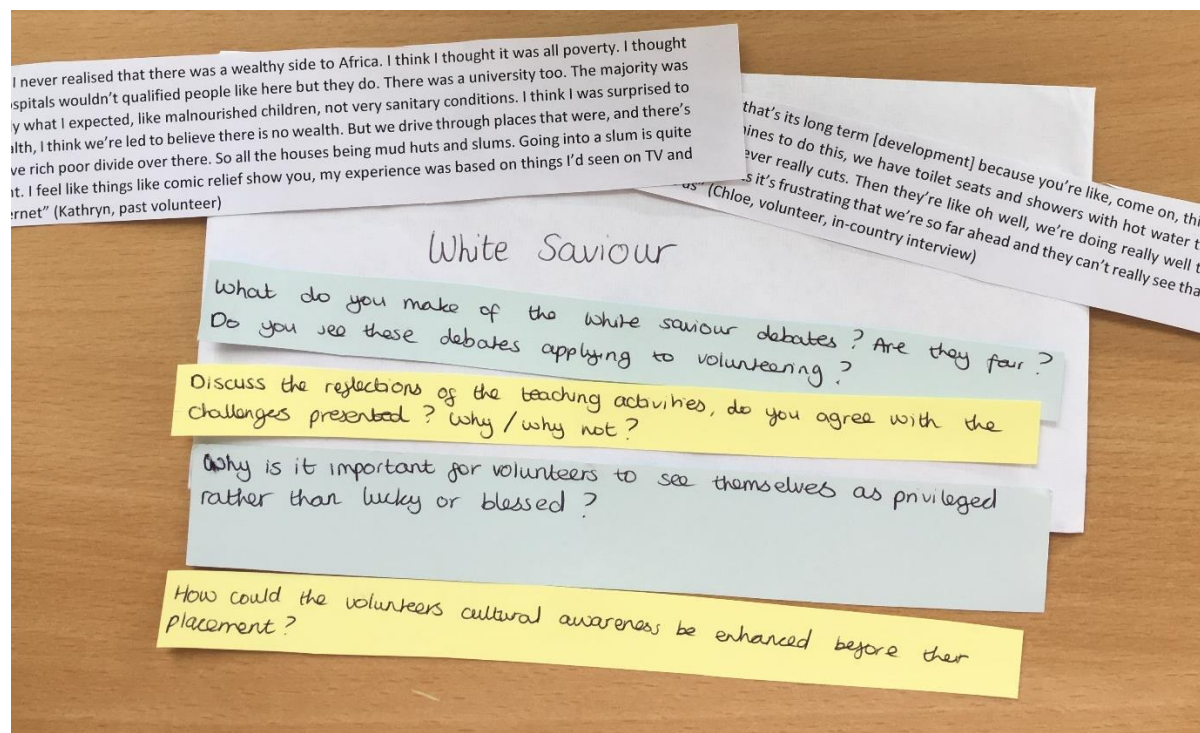 I never realised that there was a wealthy side to Africa. I think I thought it was all poverty. I thought
spitals wouldn't qualified people like here but they do. There was a university too. The majority was
y what I expected, like malnourished children, not very sanitary conditions. I think I was surprised to
alth, I think we're led to believe there is no wealth. But we drive through places that were, and there's
ve rich poor divide over there. So all the houses being mud huts and slums. Going into a slum is quite
t. I feel like things like comic relief show you, my experience was based on things I'd seen on TV and
ernet" (Kathryn, past volunteer)
that's its long term [development] because you're like, come on, thi
ines to do this, we have toilet seats and showers with hot water t
ever really cuts. Then they're like oh well, we're doing really well t
s it's frustrating that we're so far ahead and they can't really see tha
us" (Chloe, volunteer, in-country interview)
White Saviour
What do you make of the white saviour debates? Are they fair?
Do you see these debates applying to volunteering?
Discuss the reflections of the teaching activities, do you agree with the
challenges presented? Why / why not?
Why is it important for volunteers to see themselves as privileged
rather than lucky or blessed?
How could the volunteers cultural awareness be enhanced before their
placement?